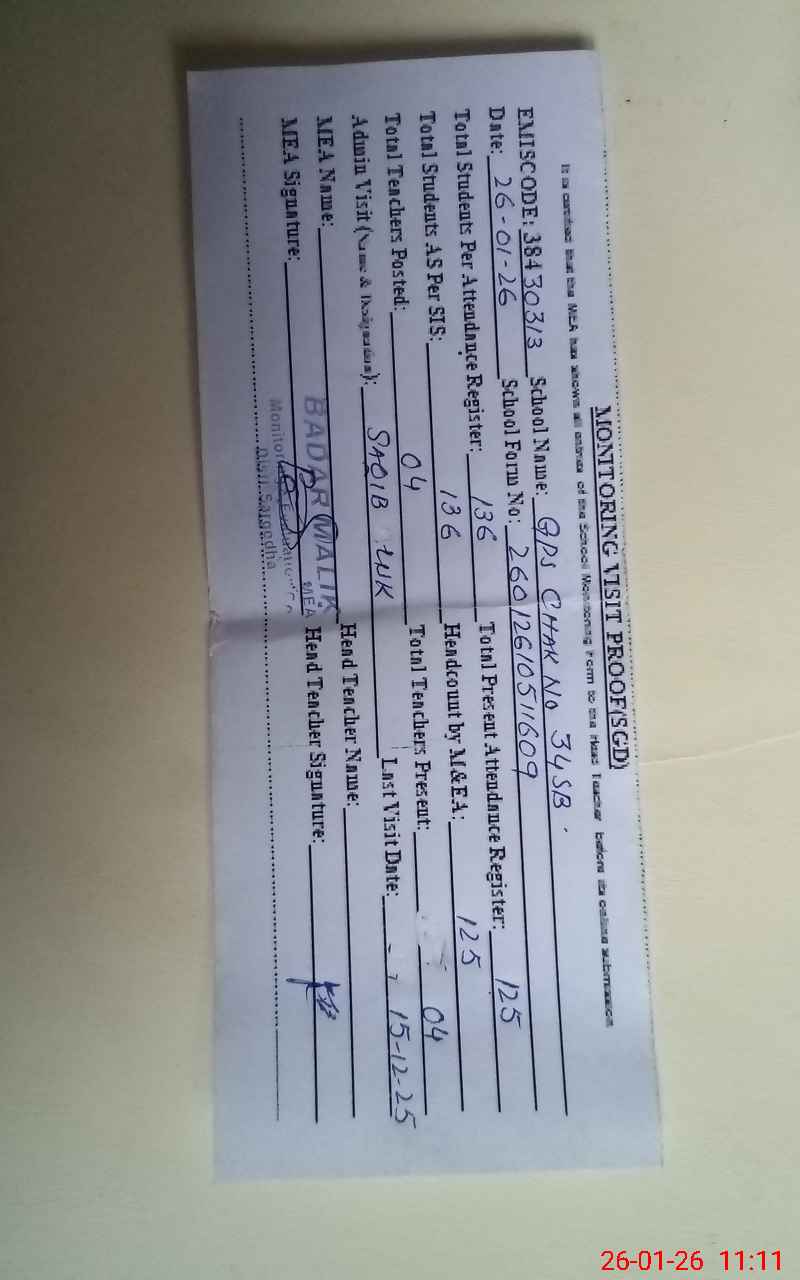 MONITORING VISIT PROOF(SGD)
It is certified that the MEA has shown all entries of the School Monitoring Form to the Head Teacher before its online submission
EMISCODE: 38430313 School Name: GPS CHAK NO 34SB.
Date: 26-01-26 School Form No: 26012610511609
Total Students Per Attendance Register: 136 Total Present Attendance Register: 125
Total Students AS Per SIS: 136 Headcount by M&EA: 125
Total Teachers Posted: 04 Total Teachers Present: 04
Admin Visit (Name & Designation): SAQIB Last Visit Date: 15-12-25
MEA Name: BADAR MALIK MEA Head Teacher Name:
MEA Signature: Head Teacher Signature:
Distt. Sargodha
26-01-26 11:11